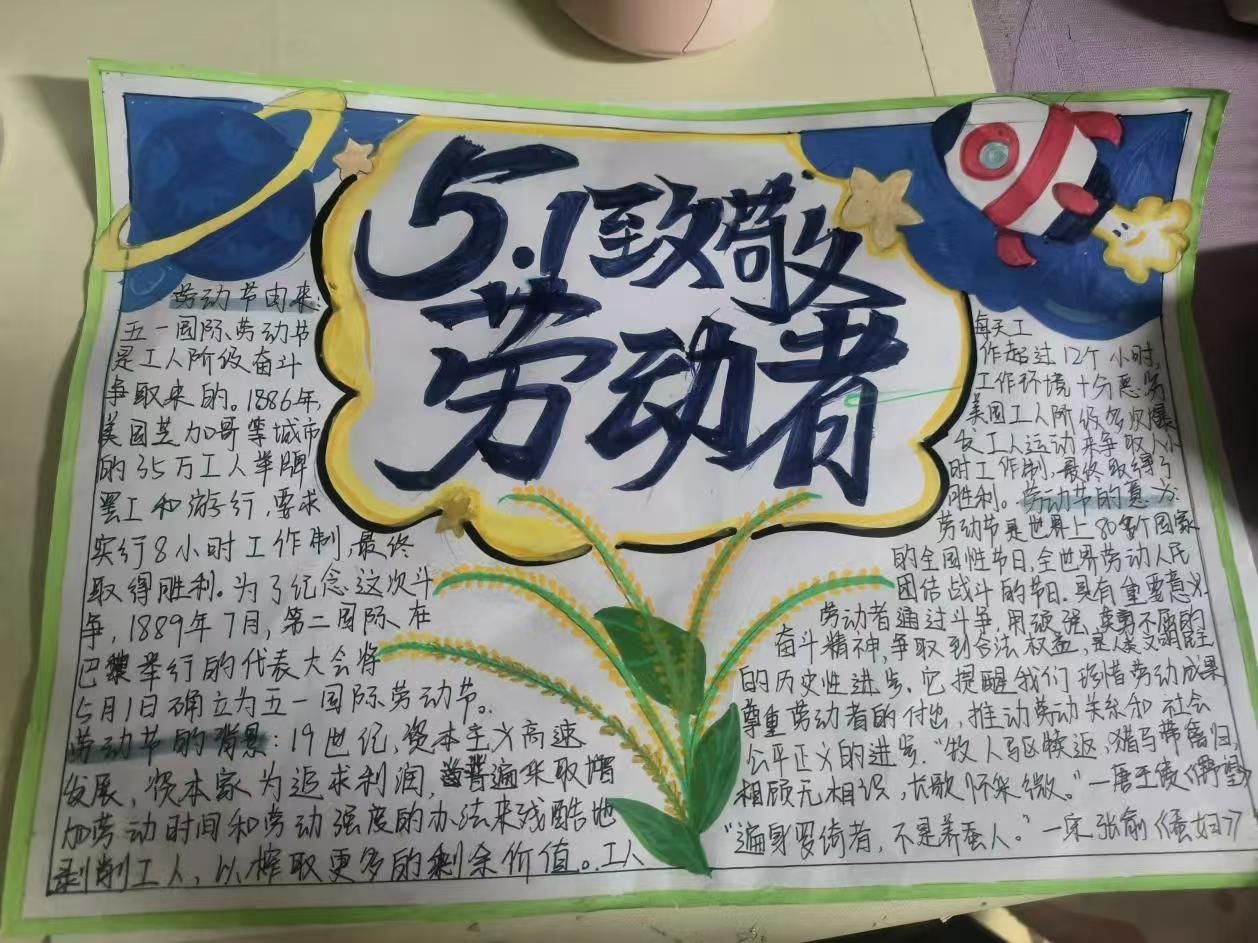 5.1致敬
劳动者
劳动节由来:
五一国际劳动节
是工人阶级奋斗
争取来的。1886年,
美国芝加哥等城市
的35万工人举牌
罢工和游行,要求
实行8小时工作制,最终
取得胜利。为了纪念这次斗
争,1889年7月,第二国际在
巴黎举行的代表大会将
5月1日确立为五一国际劳动节。
劳动节的背景:19世纪,资本主义高速
发展,资本家为追求利润,普遍采取增
加劳动时间和劳动强度的办法来残酷地
剥削工人,以榨取更多的剩余价值。工人
每天工
作超过12个小时,
工作环境十分恶劣
美国工人阶级多次爆
发工人运动来争取八小
时工作制,最终取得了
胜利。劳动节的意义:
劳动节是世界上80多个国家
的全国性节日,全世界劳动人民
团结战斗的节日。具有重要意义
劳动者通过斗争,用顽强,英勇不屈的
奋斗精神,争取到合法权益,是人类文明民主
的历史性进步,它提醒我们珍惜劳动成果
尊重劳动者的付出,推动劳动关系和社会
公平正义的进步。"牧人驱犊返,猎马带禽归,
相顾无相识,长歌怀采薇。"—唐王绩《野望》
"遍身罗绮者,不是养蚕人。"—宋张俞《蚕妇》